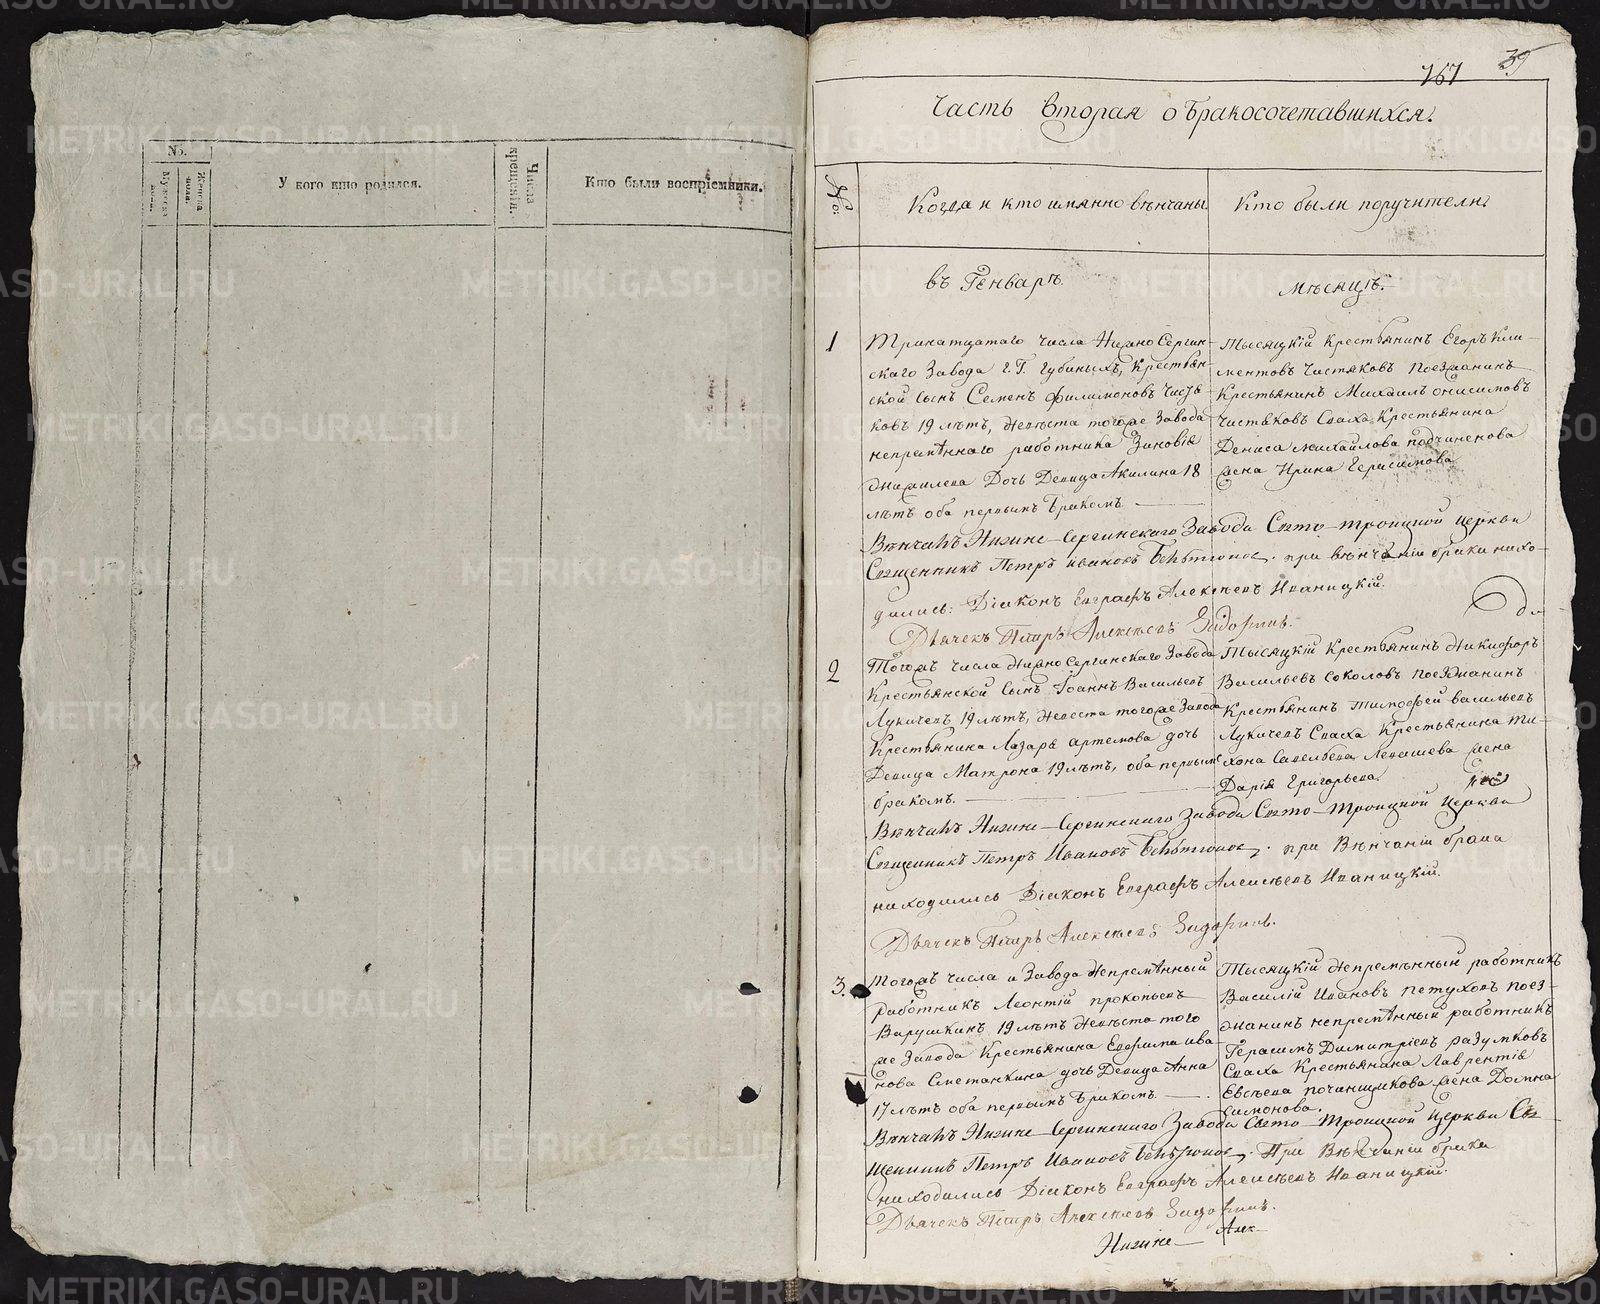 №.
Мужеска пола.
Женска пола.
У кого кто родился.
Числа крещенія.
Кто были воспріемники.
167 39
Часть вторая о бракосочетавшихся.
№.
Когда и кто имянно вѣнчаны
Кто были поручители.
въ Генварѣ.
мѣсяцѣ.
1
Тринатцатаго числа Нижно Сергин-
скаго Завода г. Г. Губиныхъ, Крестьян-
ской сынъ Семенъ Филимоновъ Чистя-
ковъ 19 лѣтъ, невѣста тогоже Завода
непремѣннаго работника Зиновія
дочь Девица Акилина 18
лѣтъ оба первымъ бракомъ
Тысяцкій Крестьянинъ Егоръ Кли-
ментовъ Чистяковъ Поезжанинъ
Крестьянинъ Михаилъ Онисимовъ
Чистяковъ Сваха Крестьянина
Дениса Михайлова Подчиненова
жена Ирина Герасимова
Вѣнчалъ Нижне-Сергинскаго Завода Свято-Троицкой Церкви
Священникъ Петръ Ивановъ при вѣнчаніи брака нахо-
дились: Діаконъ Евграфъ Алексѣевъ Иваницкій.
Дьячекъ Петръ Алексѣевъ
2
Тогожъ числа Нижно Сергинскаго Завода
Крестьянской сынъ Іоаннъ Васильевъ
Лукичевъ 19 лѣтъ, Невеста тогоже Завода
Крестьянина Лазаря Артемова дочь
Девица Матрона 19 лѣтъ, оба первымъ
бракомъ.
Тысяцкій Крестьянинъ Никифоръ
Васильевъ Соколовъ Поезжанинъ
Крестьянинъ Тимофей Васильевъ
Лукичевъ Сваха Крестьянина Ти-
хона Савельева Левашева жена
Дарія Григорьева
Вѣнчалъ Нижне-Сергинскаго Завода Свято-Троицкой Церкви
Священникъ Петръ Ивановъ при Вѣнчаніи брака
находились Діаконъ Евграфъ Алексѣевъ Иваницкій.
Дьячекъ Петръ Алексѣевъ
3.
Тогожъ числа и Завода Непремѣнный
работникъ Леонтій Прокопьевъ
Варушкинъ 19 лѣтъ Невѣста того
же Завода Крестьянина Евфима Ива-
нова Сметанкина дочь Девица Анна
17 лѣтъ оба первымъ бракомъ
Тысяцкій Непремѣнный работникъ
Василій Ивановъ Петуховъ Поез-
жанинъ непремѣнный работникъ
Герасимъ Димитріевъ Разумковъ
Сваха Крестьянина Лаврентія
Евсѣева Починщикова жена Домна
Симонова.
Вѣнчалъ Нижне-Сергинскаго Завода Свято-Троицкой Церкви Свя-
щенникъ Петръ Ивановъ При Вѣнчаніи брака
находились Діаконъ Евграфъ Алексѣевъ Иваницкій.
Дьячекъ Петръ Алексѣевъ
Нижне-
METRIKI.GASO-URAL.RU